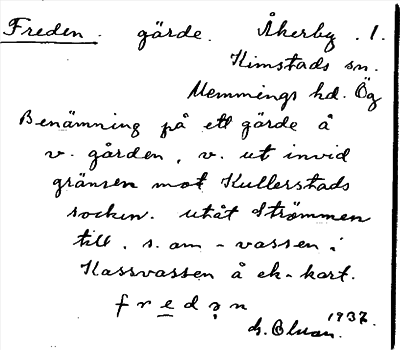 Freden. gärde. Åkerby. 1.
Kimstads sn.
Memmings hd. Ög
Benämning på ett gärde å
v. gården, v. ut invid
gränsen mot Kullerstads
socken. utåt Strömmen
till. s. om -vassen i
Kassvassen å ek-kart.
fredən
1937.